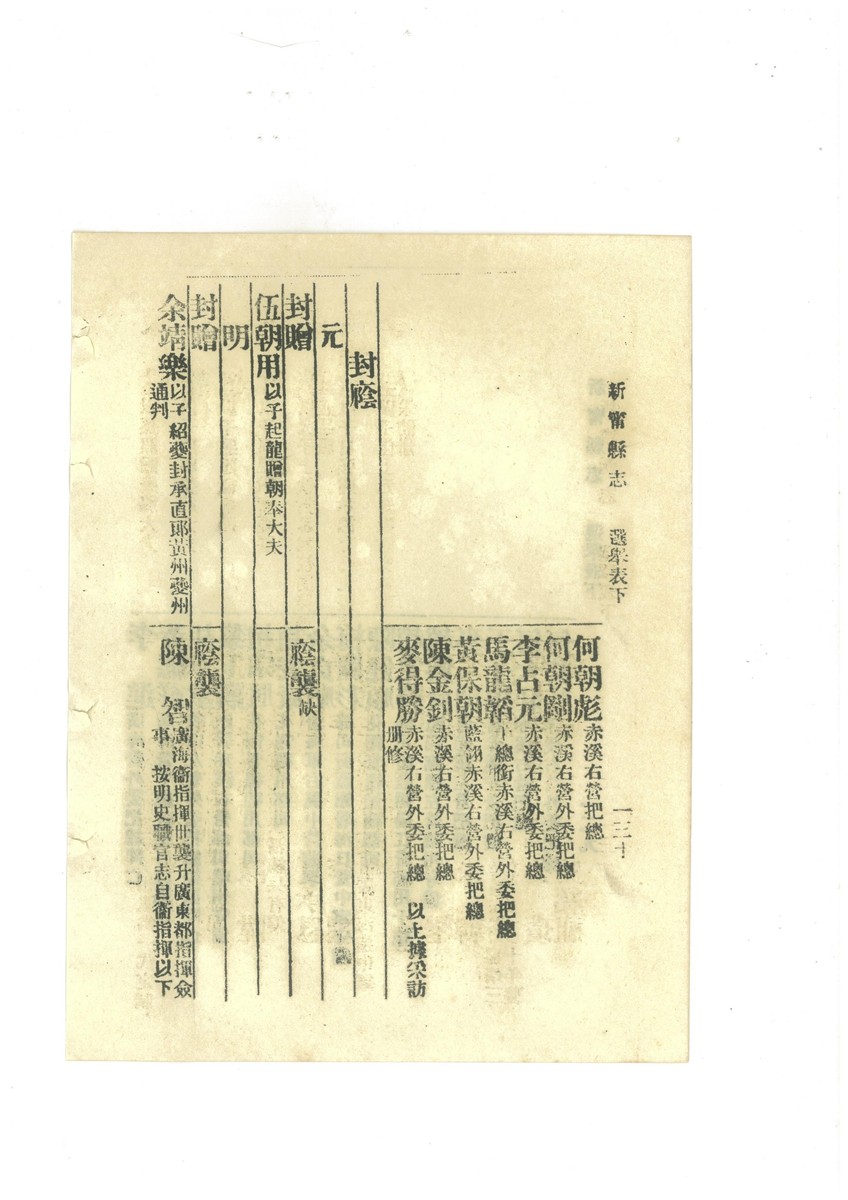 新甯縣志 選舉表下 一三十
何朝彪 赤溪右營把總
何朝剛 赤溪右營外委把總
李占元 赤溪右營外委把總
馬龍韜 千總銜赤溪右營外委把總
黃保朝 藍翎赤溪右營外委把總
陳金釗 赤溪右營外委把總
麥得勝 赤溪右營外委把總 以上據采訪
册修
封廕
元
封贈
廕襲 缺
伍朝用 以子起龍贈朝奉大夫
明
封贈
廕襲
余靖樂 以子紹夔封承直郎黃州夔州
通判
陳 智 廣海衞指揮世襲升廣東都指揮僉
事 按明史職官志自衞指揮以下